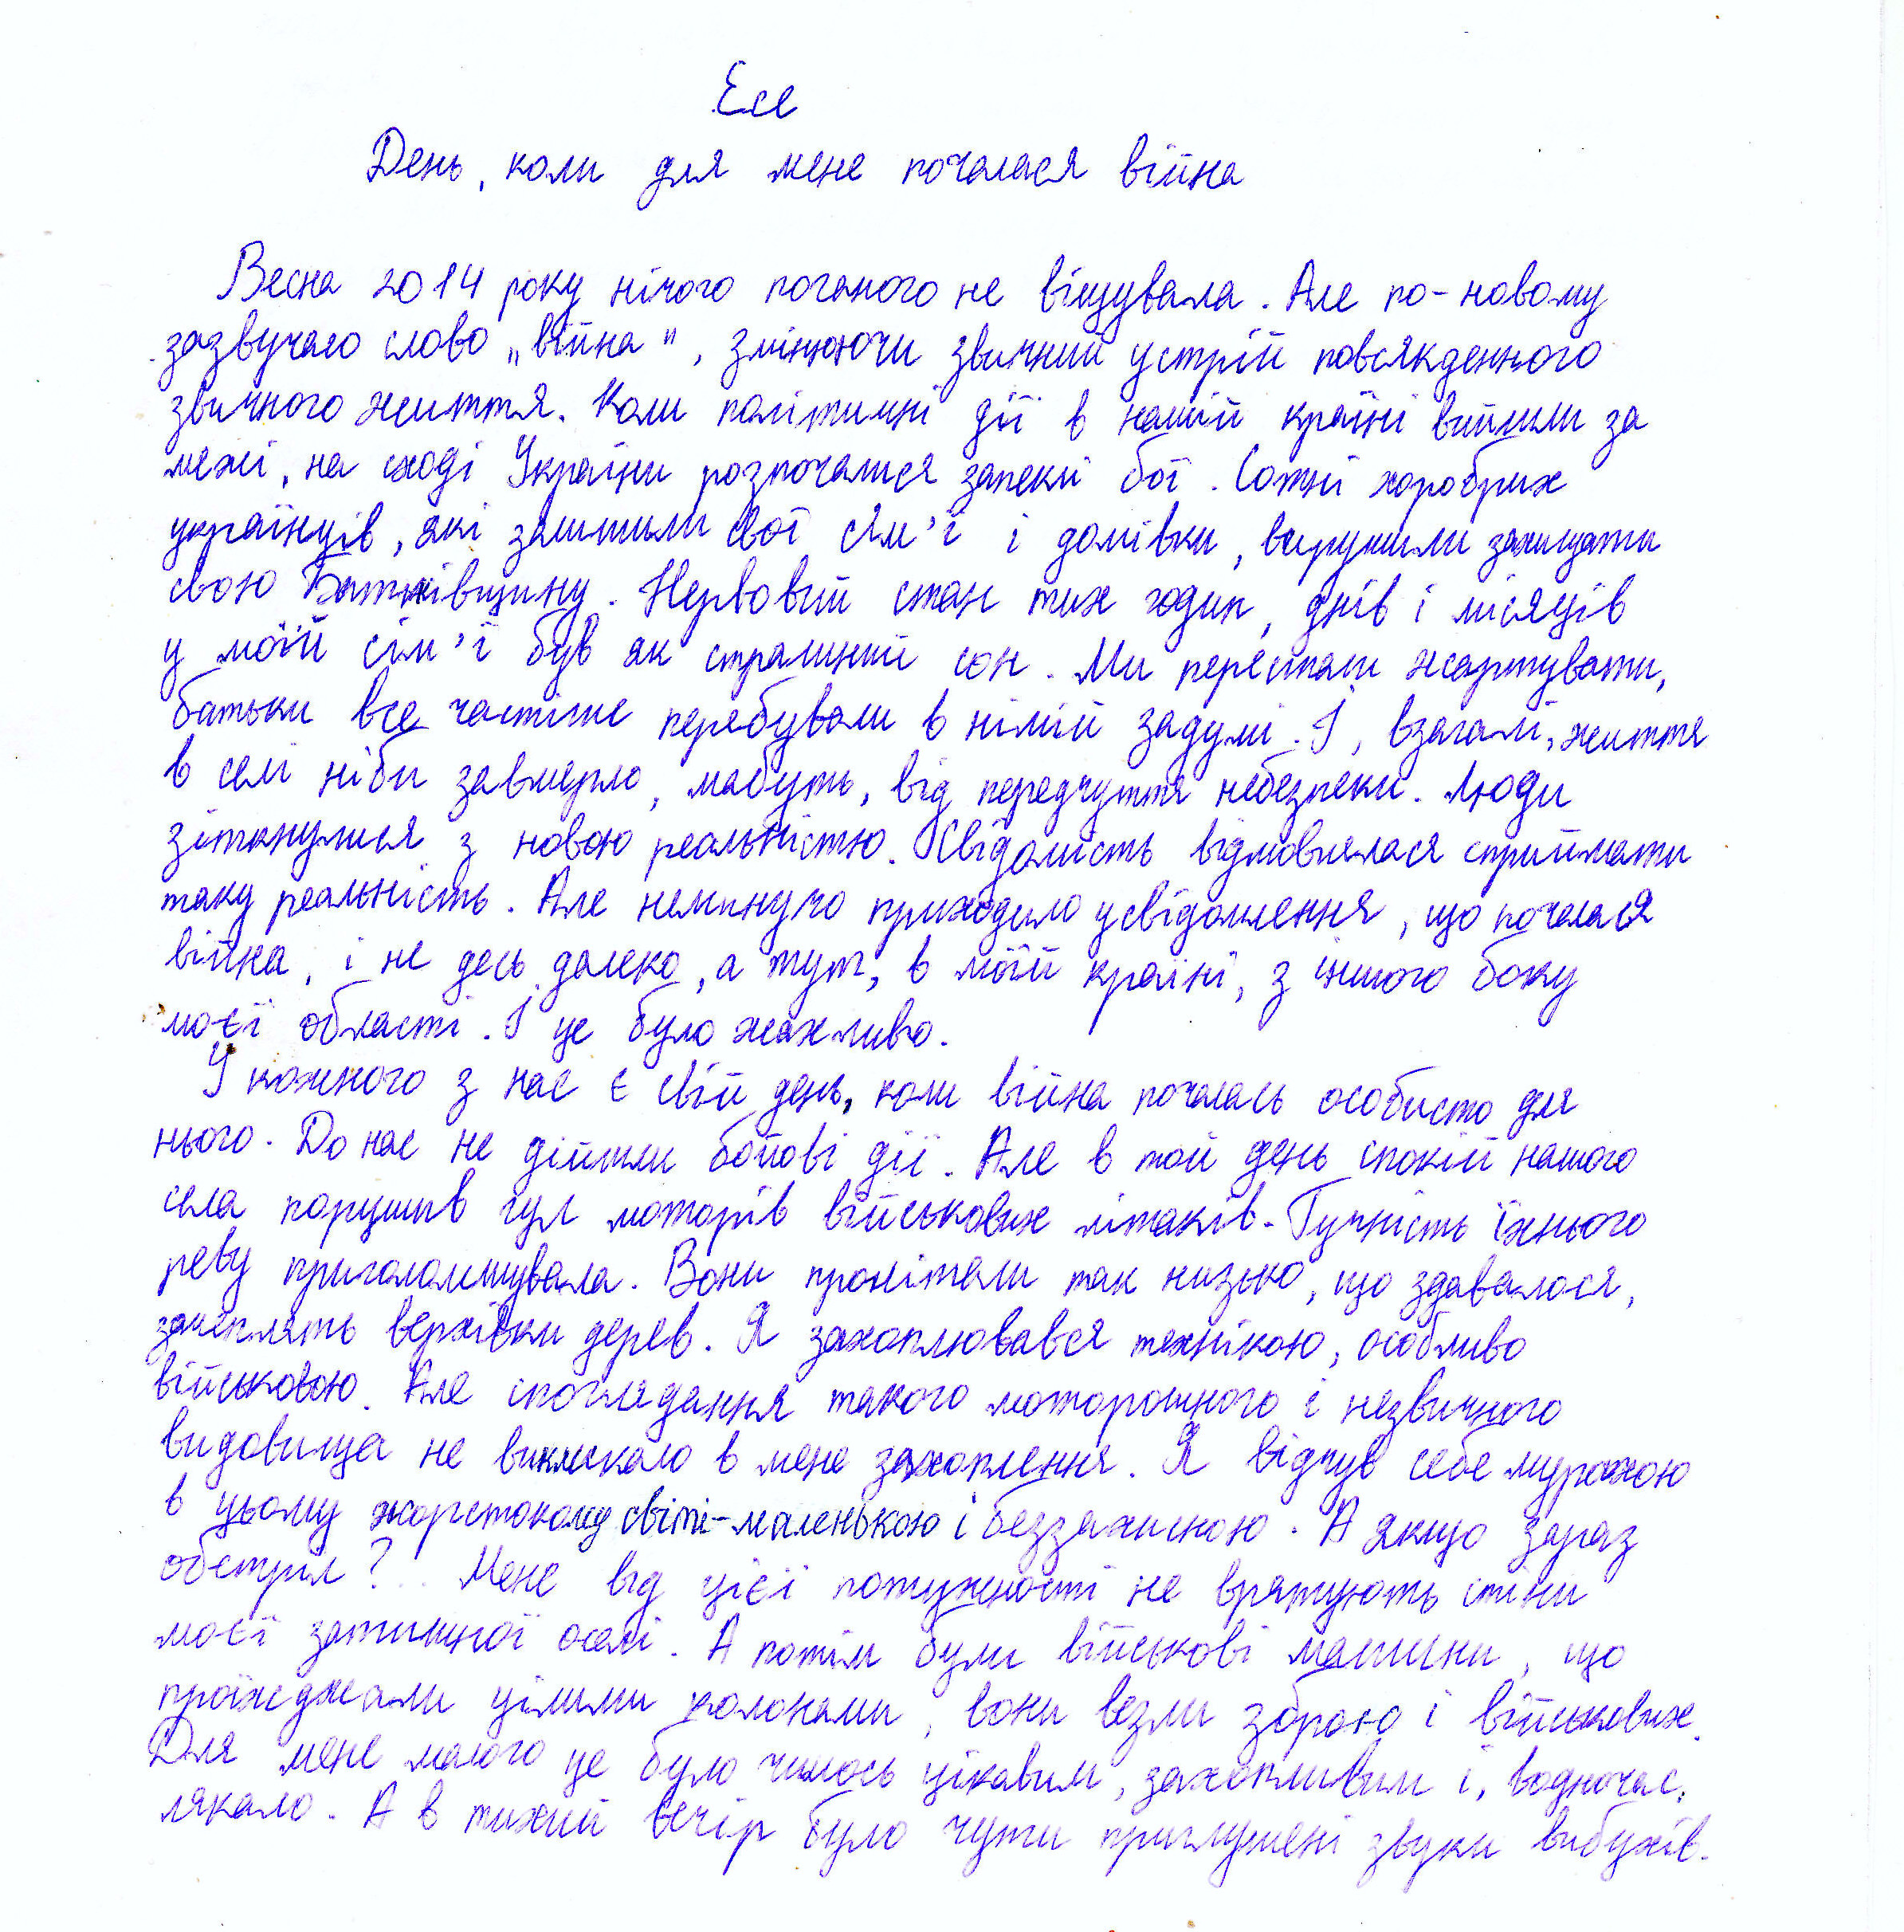 Есе
День, коли для мене почалася війна
Весна 2014 року нічого поганого не віщувала. Але по-новому
зазвучало слово „війна", змінюючи звичний устрій повсякденного
звичного життя. Коли політичні дії в нашій країні вийшли за
межі, на сході України розпочалися запеклі бої. Сотні хоробрих
українців, які залишили свої сім'ї і домівки, вирушили захищати
свою Батьківщину. Нервовий стан тих годин, днів і місяців
у моїй сім'ї був як страшний сон. Ми перестали жартувати,
батьки все частіше перебували в німій задумі. І, взагалі, життя
в селі ніби завмерло, мабуть, від передчуття небезпеки. Люди
зіткнулися з новою реальністю. Свідомість відмовлялася сприймати
таку реальність. Але неминуче приходило усвідомлення, що почалася
війна, і не десь далеко, а тут, в моїй країні, з іншого боку
моєї області. І це було жахливо.
У кожного з нас є свій день, коли війна почалась особисто для
нього. До нас не дійшли бойові дії. Але в той день спокій нашого
села порушив гул моторів військових літаків. Гучність їхнього
реву приголомшувала. Вони пролітали так низько, що здавалося,
зачеплять верхівки дерев. Я захоплювався технікою, особливо
військовою. Але споглядання такого моторошного і незвичного
видовища не викликало в мене захоплення. Я відчув себе мурахою
в цьому жорстокому світі-маленькою і беззахисною. А якщо зараз
обстріл?.. Мене від цієї потужності не врятують стіни
моєї затишної оселі. А потім були військові машини, що
проїжджали цілими колонами, вони везли зброю і військових.
Для мене малого це було чимось цікавим, захопливим і, водночас,
лякало. А в тихий вечір було чути приглушені звуки вибухів.